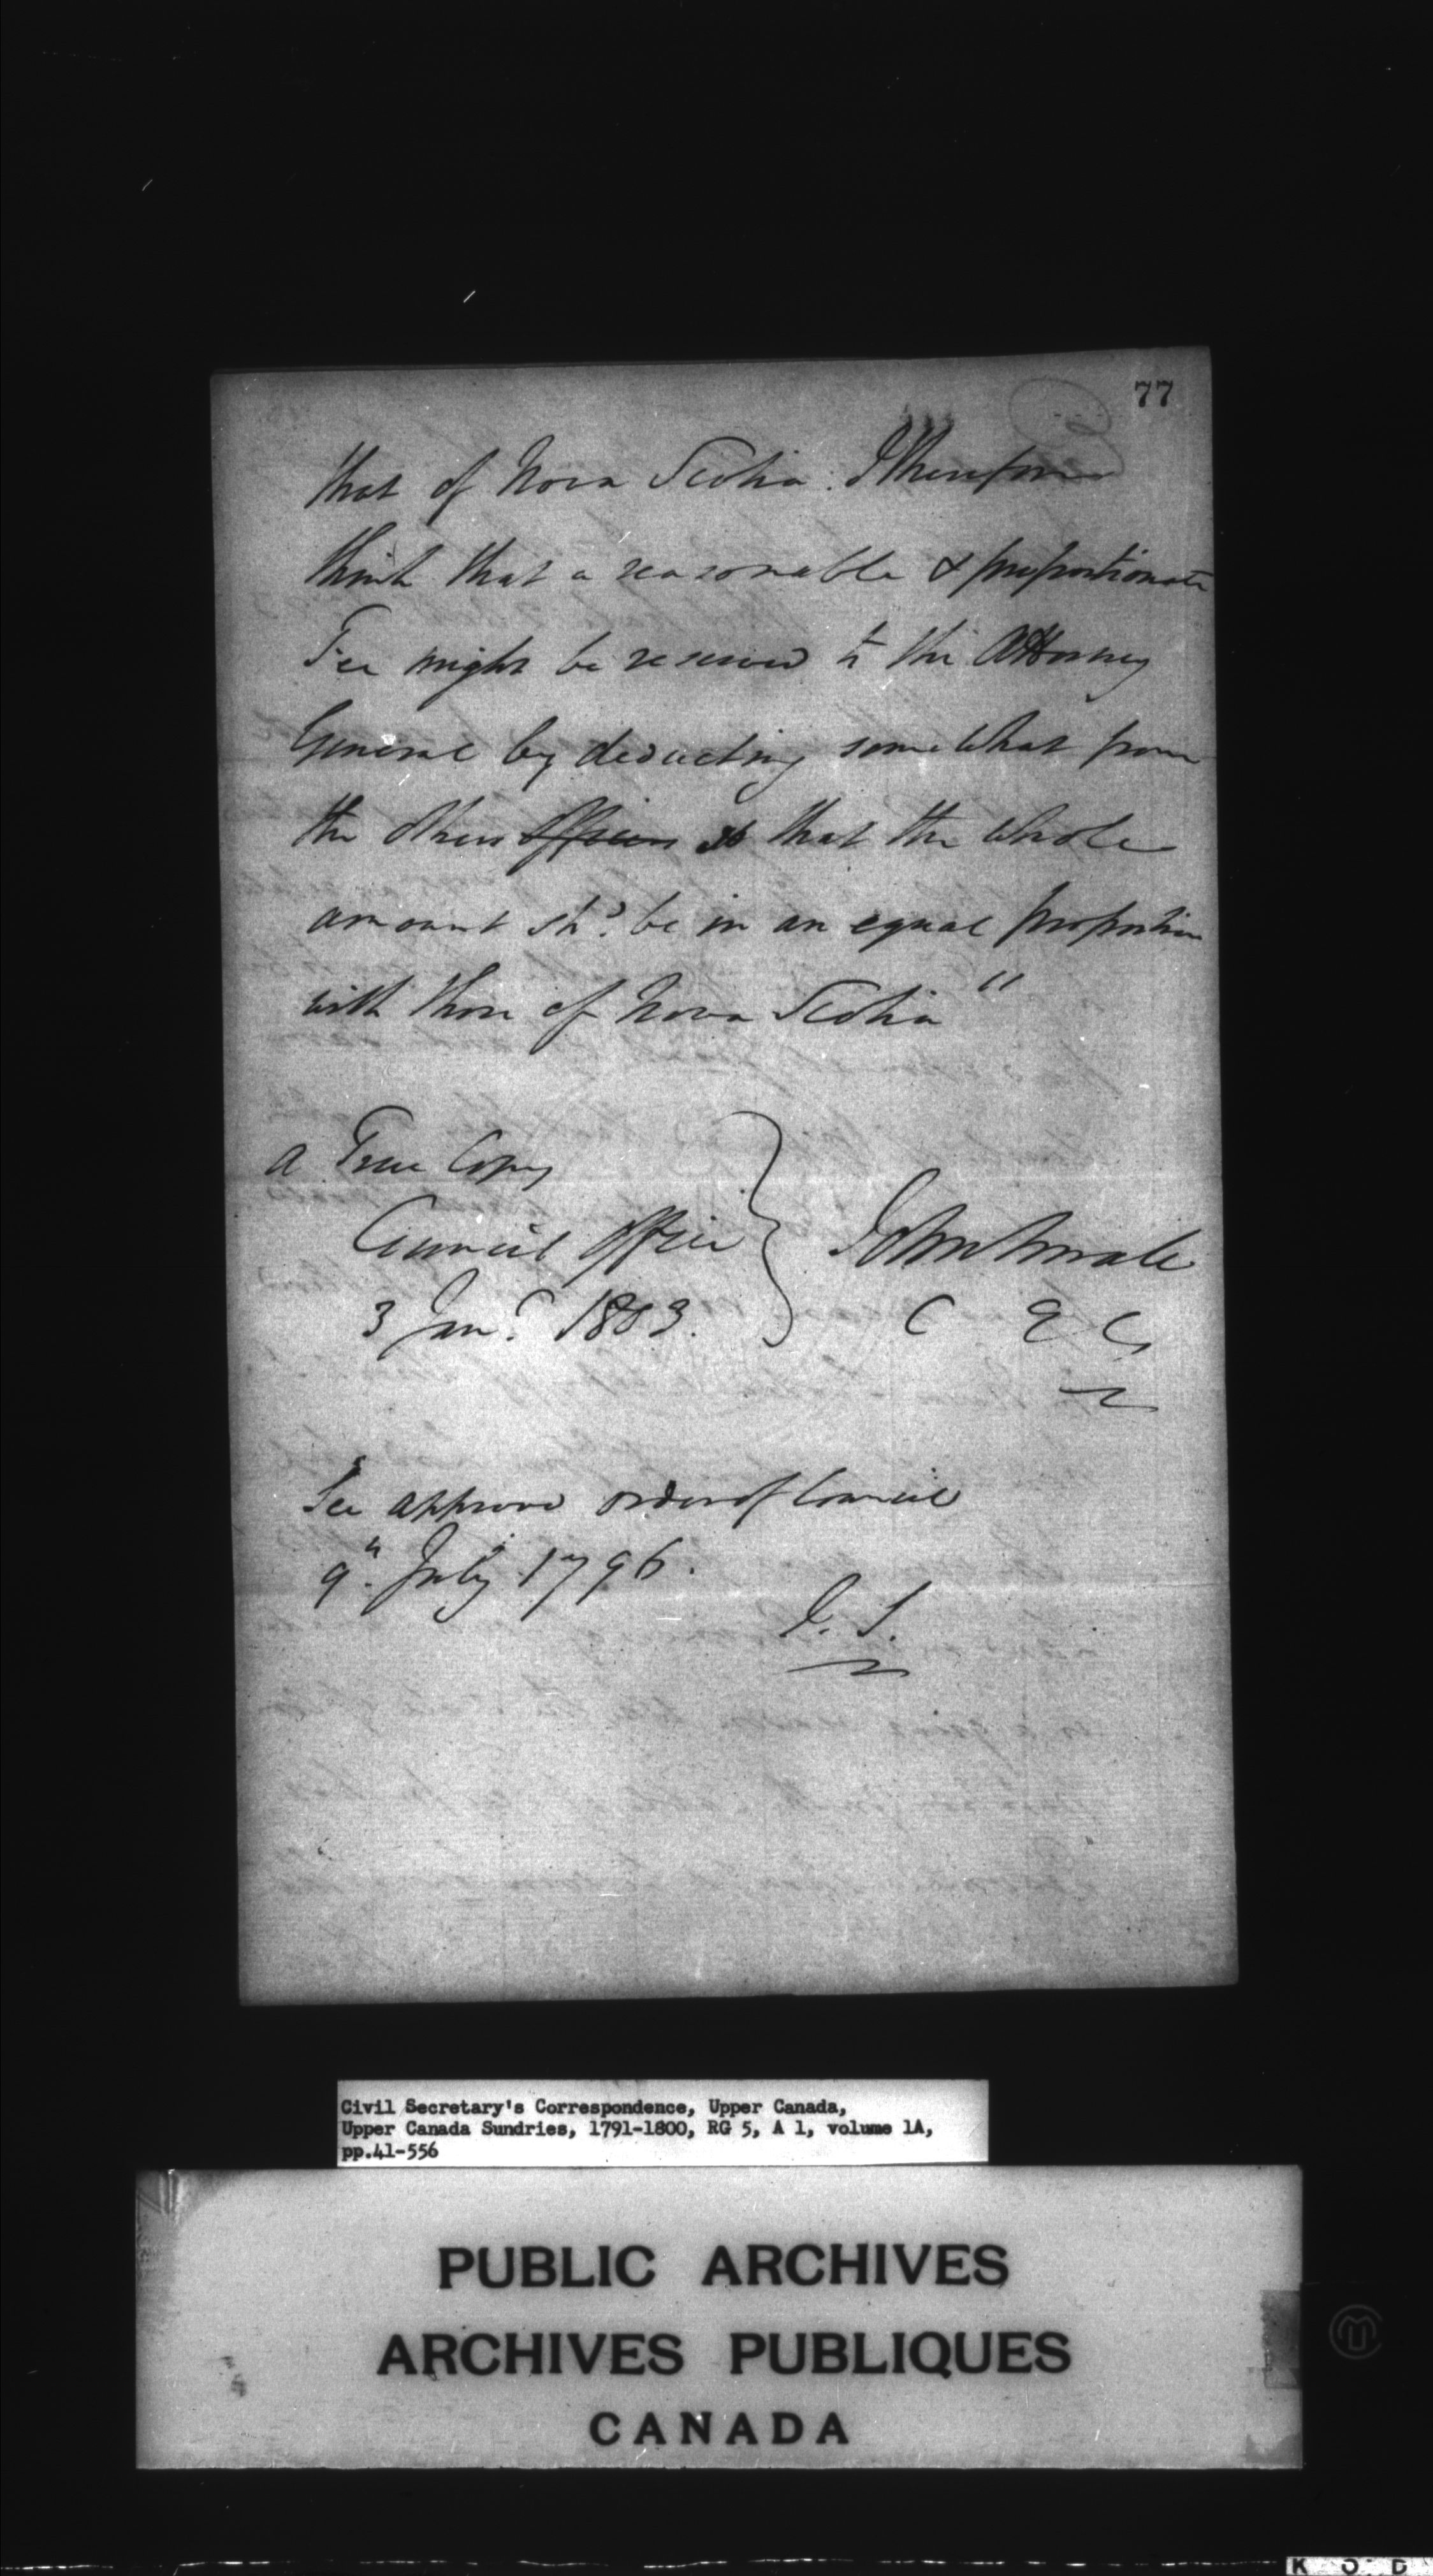 77
that of Nova Scotia. I therefore
think that a reasonable & proportionate
Fee might be reserved to the Attorney
General by deducting somewhat from
the others officers so that the whole
amount shd. be in an equal proportion
with those of Nova Scotia"
A True Copy
Council Office
3 Jany. 1803.
John Small
C E C
See approved order of Council
9th. July 1796.
J. S.
Civil Secretary's Correspondence, Upper Canada,
Upper Canada Sundries, 1791-1800, RG 5, A 1, volume 1A,
pp.41-556
PUBLIC ARCHIVES
ARCHIVES PUBLIQUES
CANADA